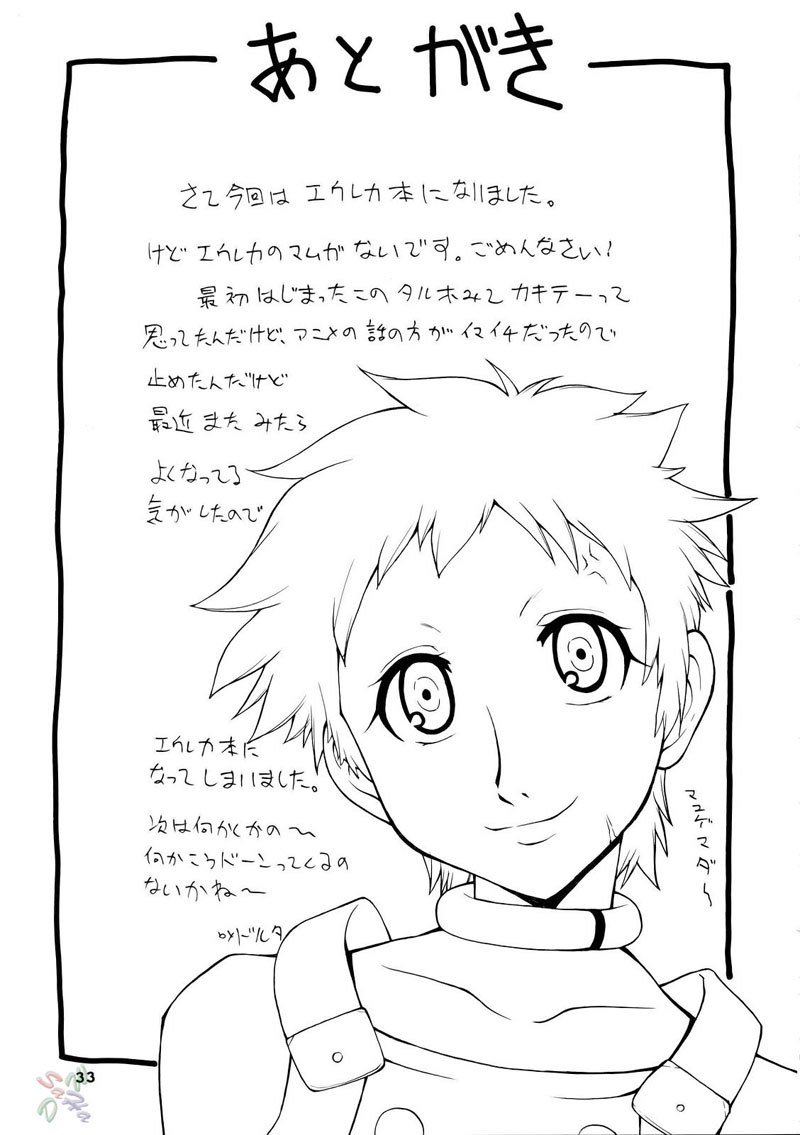 あとがき
さて今回は エウレカ本になりました。
けど エウレカのマムが ないです。ごめんなさい!
最初 はじまったこの タルホみて カキテーって
思ってたんだけど、アニメの 話の方が イマイチだったので
止めたんだけど
最近 また みたら
よくなってる
気がしたので
エウレカ本に
なって しまいました。
次は何かくかの〜
何かこうドーンってくるの
ないかね〜
マユゲマダ〜
33